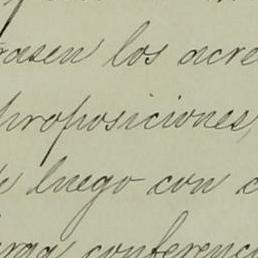 los acre
proposiciones,
luego con
conferenc